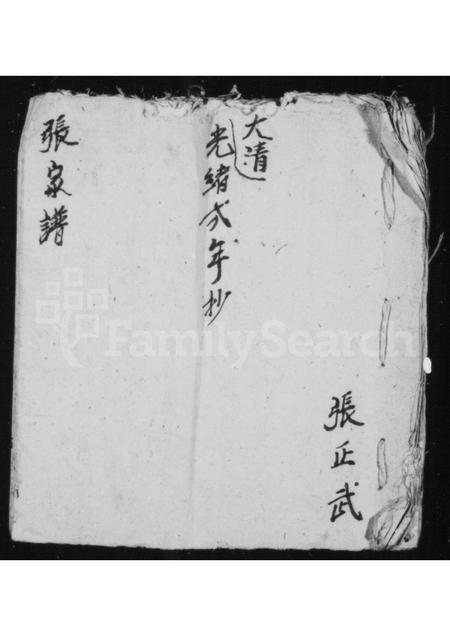 張正武
大清
光緒弍年抄
張家譜
FamilySearch